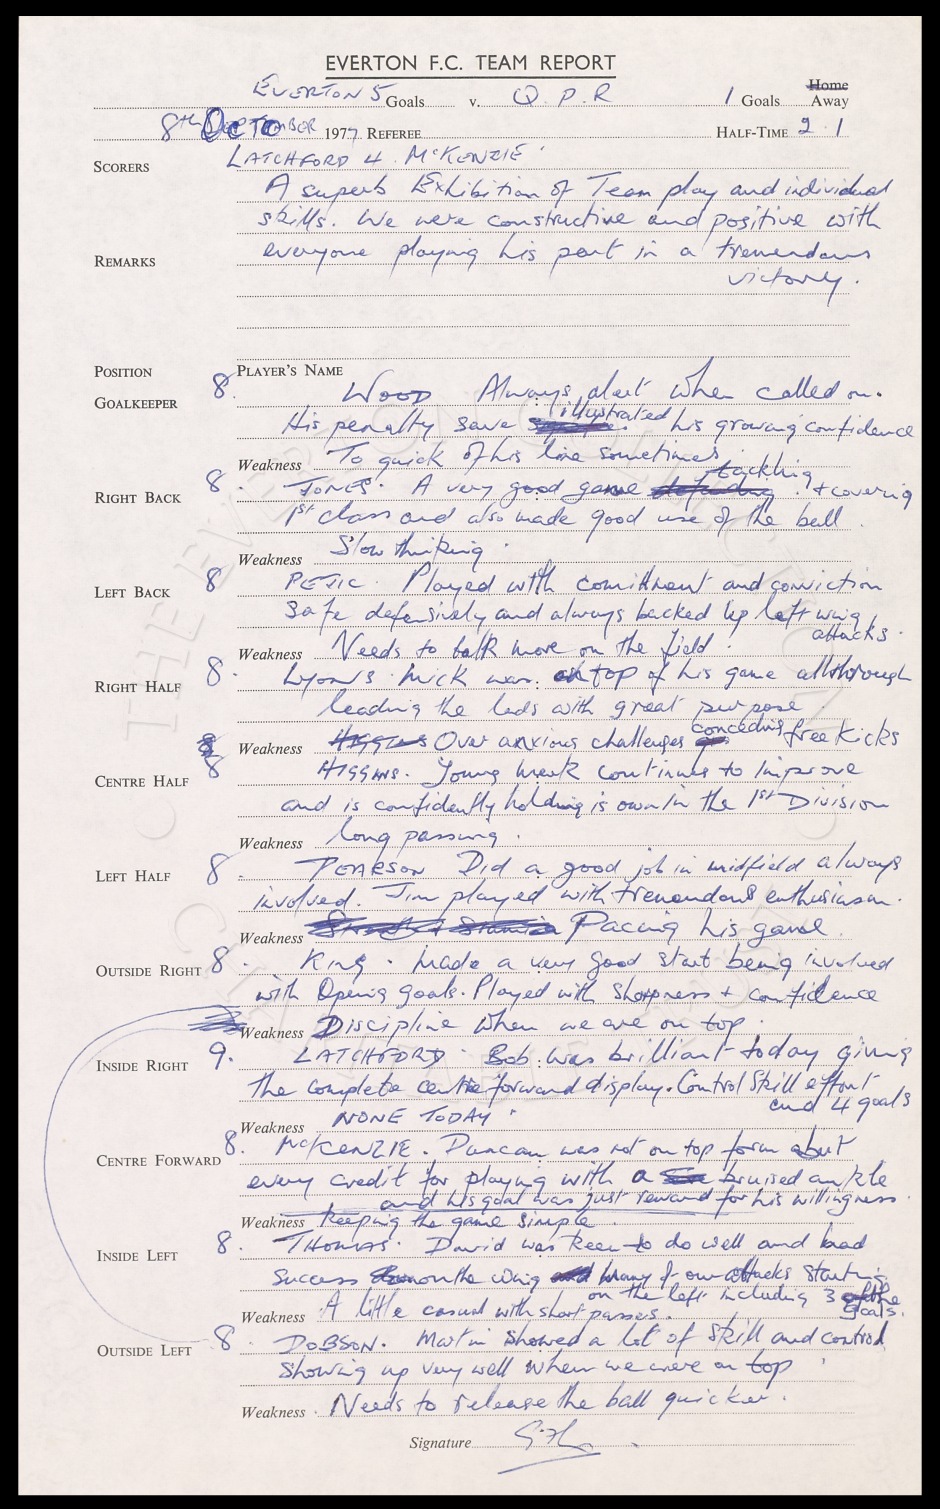 EVERTON F.C. TEAM REPORT
EVERTON 5 Goals v. Q.P.R 1 Goals Home Away
8th October 1977 REFEREE HALF-TIME 2 . 1
SCORERS LATCHFORD 4. McKENZIE
A superb Exhibition of Team play and individual
skills. We were constructive and positive with
REMARKS everyone playing his part in a tremendous
victory.
POSITION PLAYER'S NAME
GOALKEEPER 8. WOOD Always alert when called on.
His penalty save illustrated his growing confidence
Weakness To quick of his line sometimes
RIGHT BACK 8. JONES. A very good game tackling + covering
1st class and also made good use of the ball
Weakness Slow thinking.
LEFT BACK 8 PEJIC. Played with comittment and conviction
Safe defensively and always backed up left wing
attacks.
Weakness Needs to talk more on the field.
RIGHT HALF 8. Lyons. Mick was on top of his game all through
leading the lads with great purpose.
Weakness Higgins Over anxious challenges conceding free kicks
CENTRE HALF 8 HIGGINS. Young Mark continues to improve
and is confidently holding is own in the 1st Division
Weakness long passing.
LEFT HALF 8. PEARSON Did a good job in midfield always
involved. Jim played with tremendous enthusiasm.
Weakness Pacing his game.
OUTSIDE RIGHT 8. King. Made a very good start being involved
with Opening goals. Played with sharpness + confidence
Weakness Discipline when we are on top.
INSIDE RIGHT 9. LATCHFORD. Bob was brilliant today giving
the complete centre forward display. Control Skill effort
and 4 goals
Weakness NONE TODAY
CENTRE FORWARD 8. McKENZIE. Duncan was not on top form about
every credit for playing with a bruised ankle
and his goal was just reward for his willingness.
Weakness keeping the game simple.
INSIDE LEFT 8. THOMAS. David was keen to do well and had
success on the wing many of our attacks starting
on the left including 3 of the
goals.
Weakness A little casual with short passes.
OUTSIDE LEFT 8 DOBSON. Martin showed a lot of skill and control
showing up very well when we were on top
Weakness. Needs to release the ball quicker.
Signature